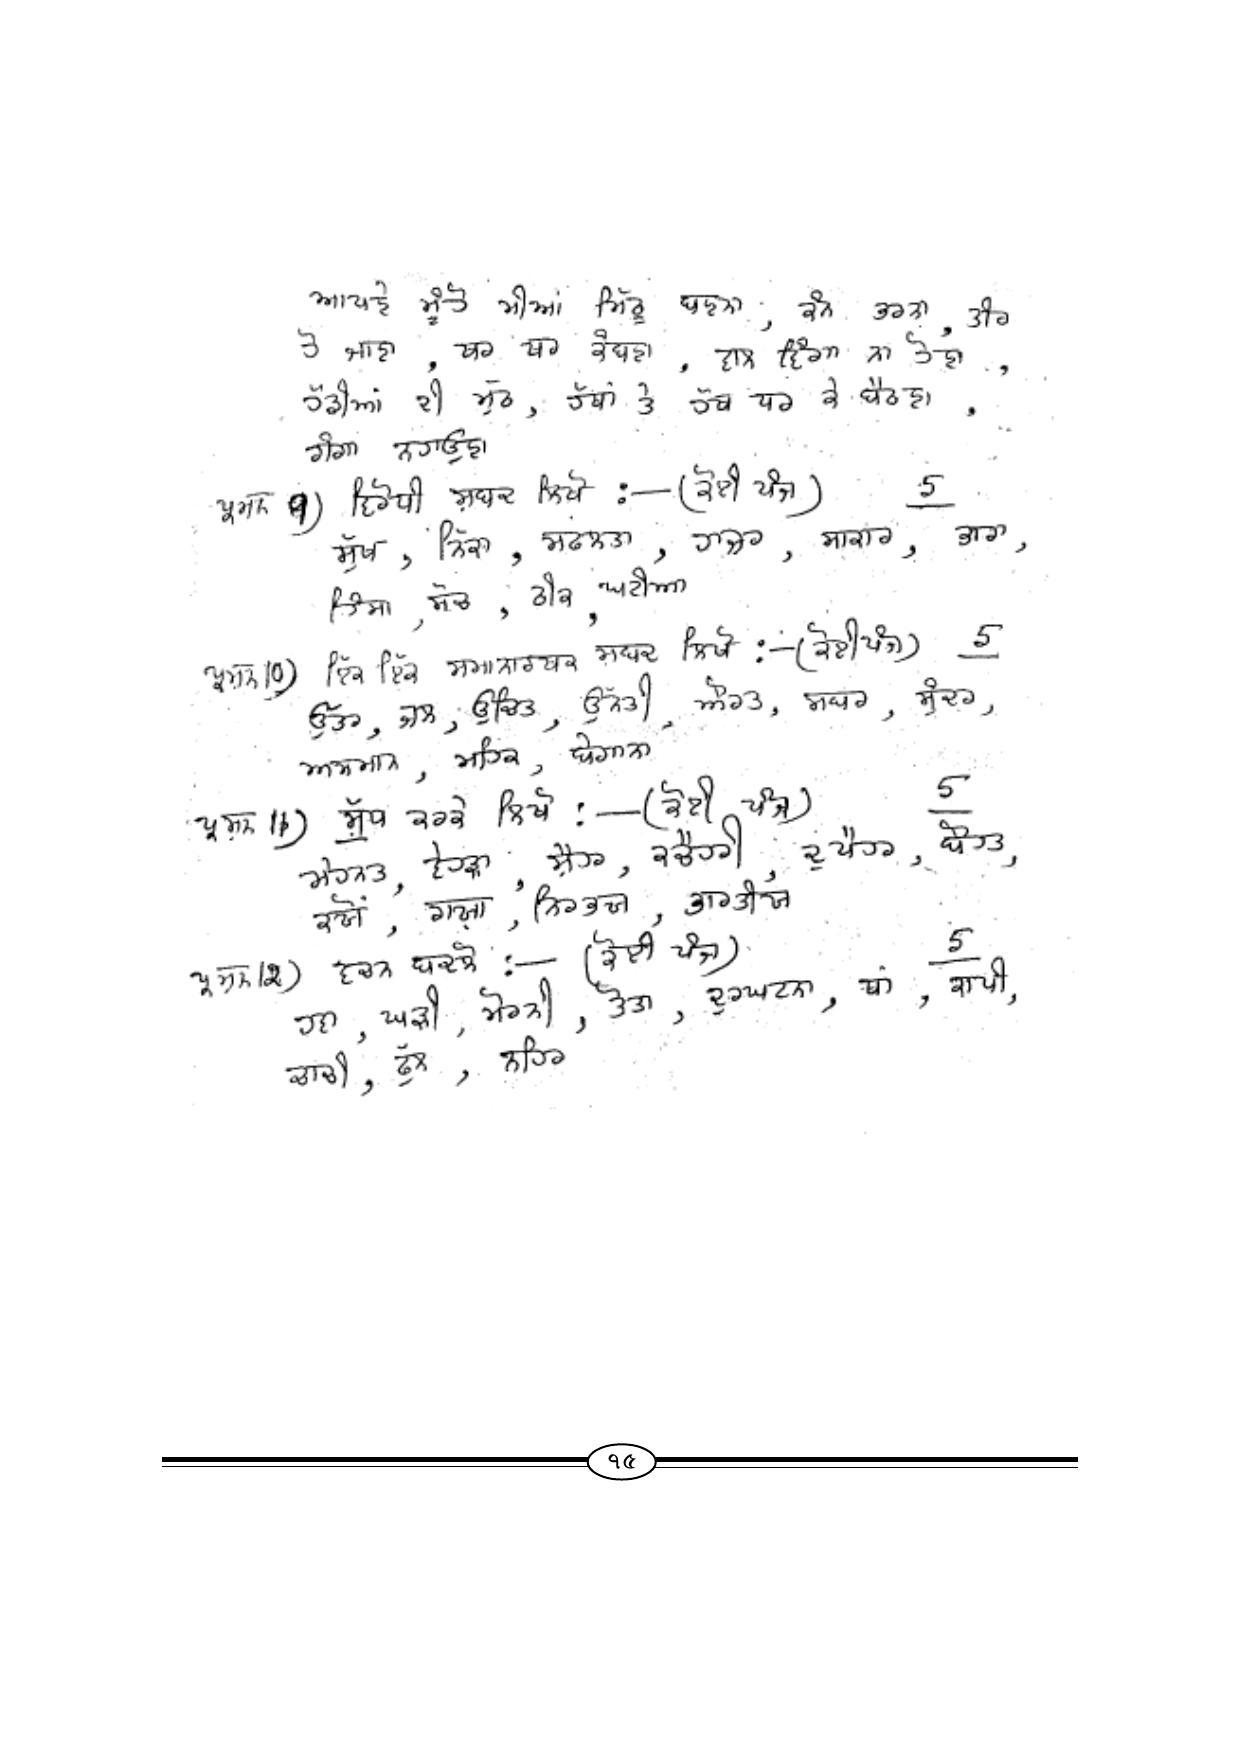 ਆਪਣੇ ਮੂੰਹੋਂ ਮੀਆਂ ਮਿੱਠੂ ਬਣਨਾ, ਕੰਨ ਭਰਨਾ, ਤੀਰ
ਹੋ ਜਾਣਾ, ਥਰ ਥਰ ਕੰਬਣਾ, ਵਾਲ ਵਿੰਗਾ ਨਾ ਹੋਣਾ,
ਹੱਡੀਆਂ ਦੀ ਮੁੱਠ, ਹੱਥਾਂ ਤੇ ਹੱਥ ਧਰ ਕੇ ਬੈਠਣਾ,
ਗੰਗਾ ਨਹਾਉਣਾ
ਪ੍ਰਸ਼ਨ 9) ਵਿਰੋਧੀ ਸ਼ਬਦ ਲਿਖੋ :— (ਕੋਈ ਪੰਜ) 5
ਸੁੱਖ, ਨਿੱਕਾ, ਸਫਲਤਾ, ਹਾਜ਼ਰ, ਸਾਕਾਰ, ਭਾਰਾ,
ਹਿੰਸਾ, ਸੋਚ, ਠੀਕ, ਘਟੀਆ
ਪ੍ਰਸ਼ਨ 10) ਇੱਕ ਇੱਕ ਸਮਾਨਾਰਥਕ ਸ਼ਬਦ ਲਿਖੋ :—(ਕੋਈ ਪੰਜ) 5
ਉੱਤਰ, ਜਲ, ਉਚਿਤ, ਉੱਨਤੀ, ਔਰਤ, ਸਬਰ, ਸੁੰਦਰ,
ਅਸਮਾਨ, ਮਹਿਕ, ਬੇਗਾਨਾ
ਪ੍ਰਸ਼ਨ 11) ਸ਼ੁੱਧ ਕਰਕੇ ਲਿਖੋ :—(ਕੋਈ ਪੰਜ) 5
ਮੇਹਨਤ, ਵੇਹੜਾ, ਸ਼ੈਹਰ, ਕਚੈਹਰੀ, ਦੁਪੈਹਰ, ਬੌਹਤ,
ਕਯੋਂ, ਨਿਰਭਯ, ਭਾਰਤੀਯ
ਪ੍ਰਸ਼ਨ 12) ਵਚਨ ਬਦਲੋ :— (ਕੋਈ ਪੰਜ) 5
ਹਵਾ, ਘੜੀ, ਮੋਰਨੀ, ਤੋਤਾ, ਦੁਰਘਟਨਾ, ਥਾਂ, ਕਾਪੀ,
ਚਾਚੀ, ਫੁੱਲ, ਨਹਿਰ
੧੫